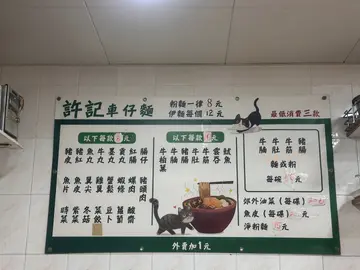 許記車仔麵
粉麵一律 8 元
伊麵每個 12 元
最低消費三款
以下每款 元
豬皮
豬紅
魚丸
牛丸
墨丸
貢丸
紅腸
腸仔
魚片
魚皮
雞尖
雞翼
蟹柳
蝦餃
螺肉
豬頭肉
時菜
紫菜
冬菇
菜餃
豆卜
蘿蔔
酸齋
以下每款 元
牛柏葉
牛腩
牛肚
牛筋
牛腸
雲吞
魷魚
牛腩
牛肚
牛筋
豬腸
麵或粉
每碗 元
郊外油菜（每碟）
魚皮（每碟）
淨粉麵 元
外賣加1元